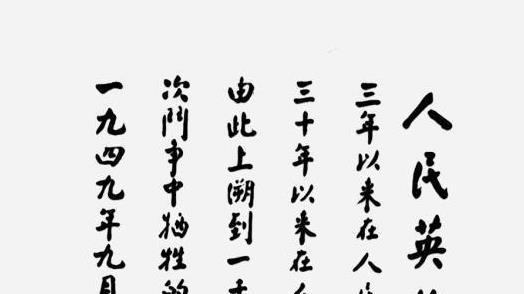 人民英
三年以来在人
三十年以来在
由此上溯到一千
次鬥争中牺牲的
一九四九年九月